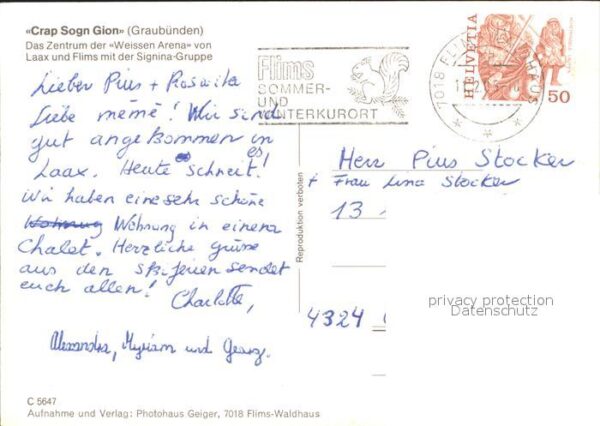 «Crap Sogn Gion» (Graubünden)
Das Zentrum der «Weissen Arena» von
Laax und Flims mit der Signina-Gruppe
Lieber Pius + Roswita
Liebe mémé! Wir sind
gut angekommen in
Laax. Heute schneit es!
Wir haben eine sehr schöne
Wohnung Wohnung in einem
Chalet. Herzliche grüsse
aus den skiferien sendet
euch allen!
Charlotte,
Alexandra, Myriam und Georg.
C 5647
Aufnahme und Verlag: Photohaus Geiger, 7018 Flims-Waldhaus
Reproduktion verboten
Flims
SOMMER-
UND
WINTERKURORT
7018 FLIMS
HELVETIA
50
Herr Pius Stocker
+ Frau Lina Stocker
13
4324
privacy protection
Datenschutz